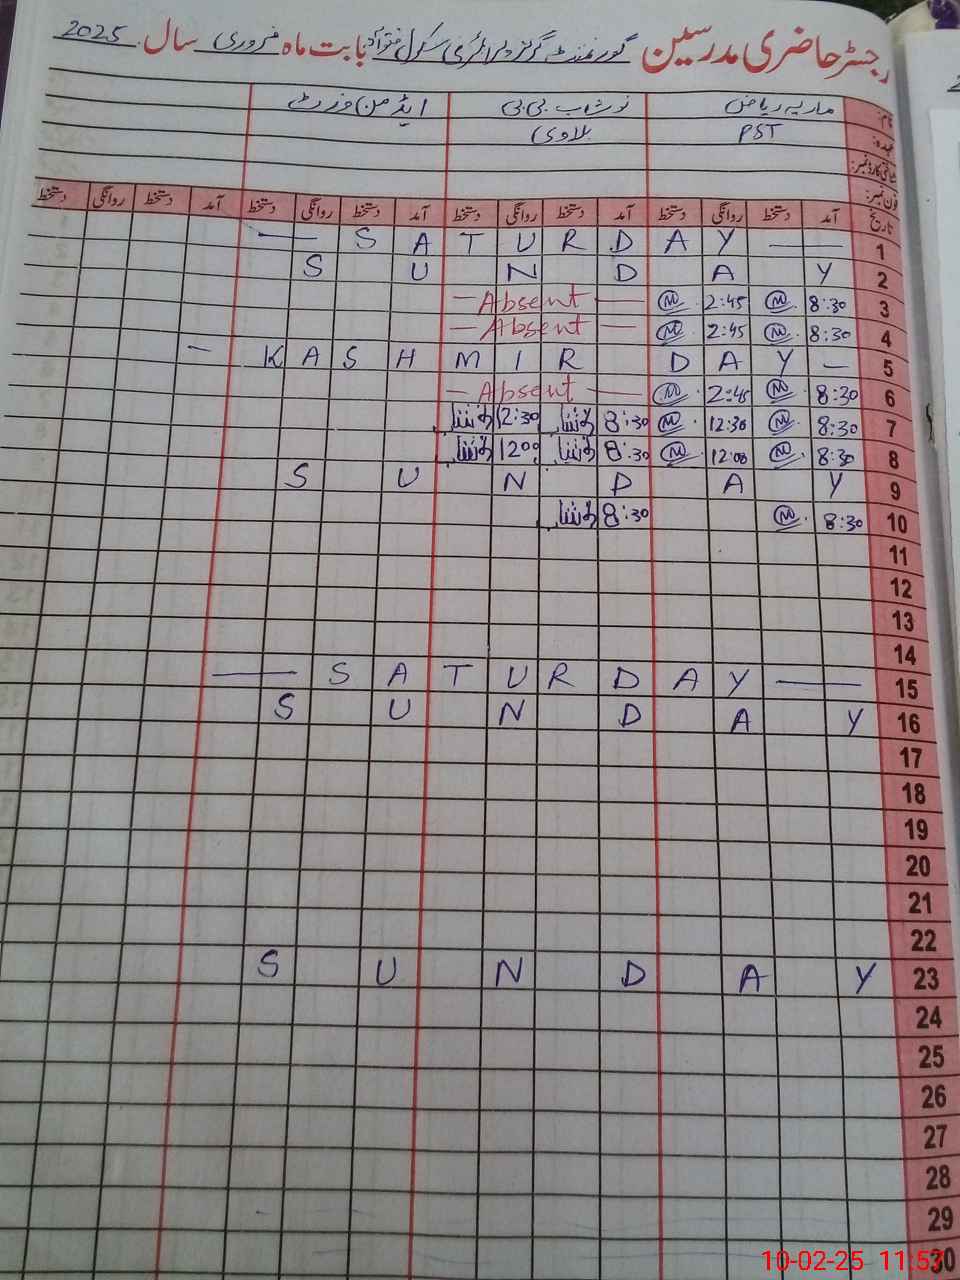 رجسٹر حاضری مدرسین گورنمنٹ گرلز پرائمری سکول بابت ماہ فروری سال 2025
نام: ماریہ ریاض نوشابہ بی بی
عہدہ: PST بلاوی
شناختی کارڈ نمبر:
فون نمبر:
تاریخ آمد دستخط روانگی دستخط آمد دستخط روانگی دستخط آمد دستخط روانگی دستخط آمد دستخط روانگی دستخط
— S A T U R D A Y — 1
S U N D A Y 2
— Absent — M 2:45 M 8:30 3
— Absent — M 2:45 M 8:30 4
— K A S H M I R D A Y — 5
— Absent — M 2:45 M 8:30 6
12:30 8:30 M 12:30 M 8:30 7
1200 8:30 M 12:00 M 8:30 8
S U N D A Y 9
8:30 M 8:30 10
11
12
13
14
— S A T U R D A Y — 15
S U N D A Y 16
17
18
19
20
21
22
S U N D A Y 23
24
25
26
27
28
29
30
10-02-25 11:53